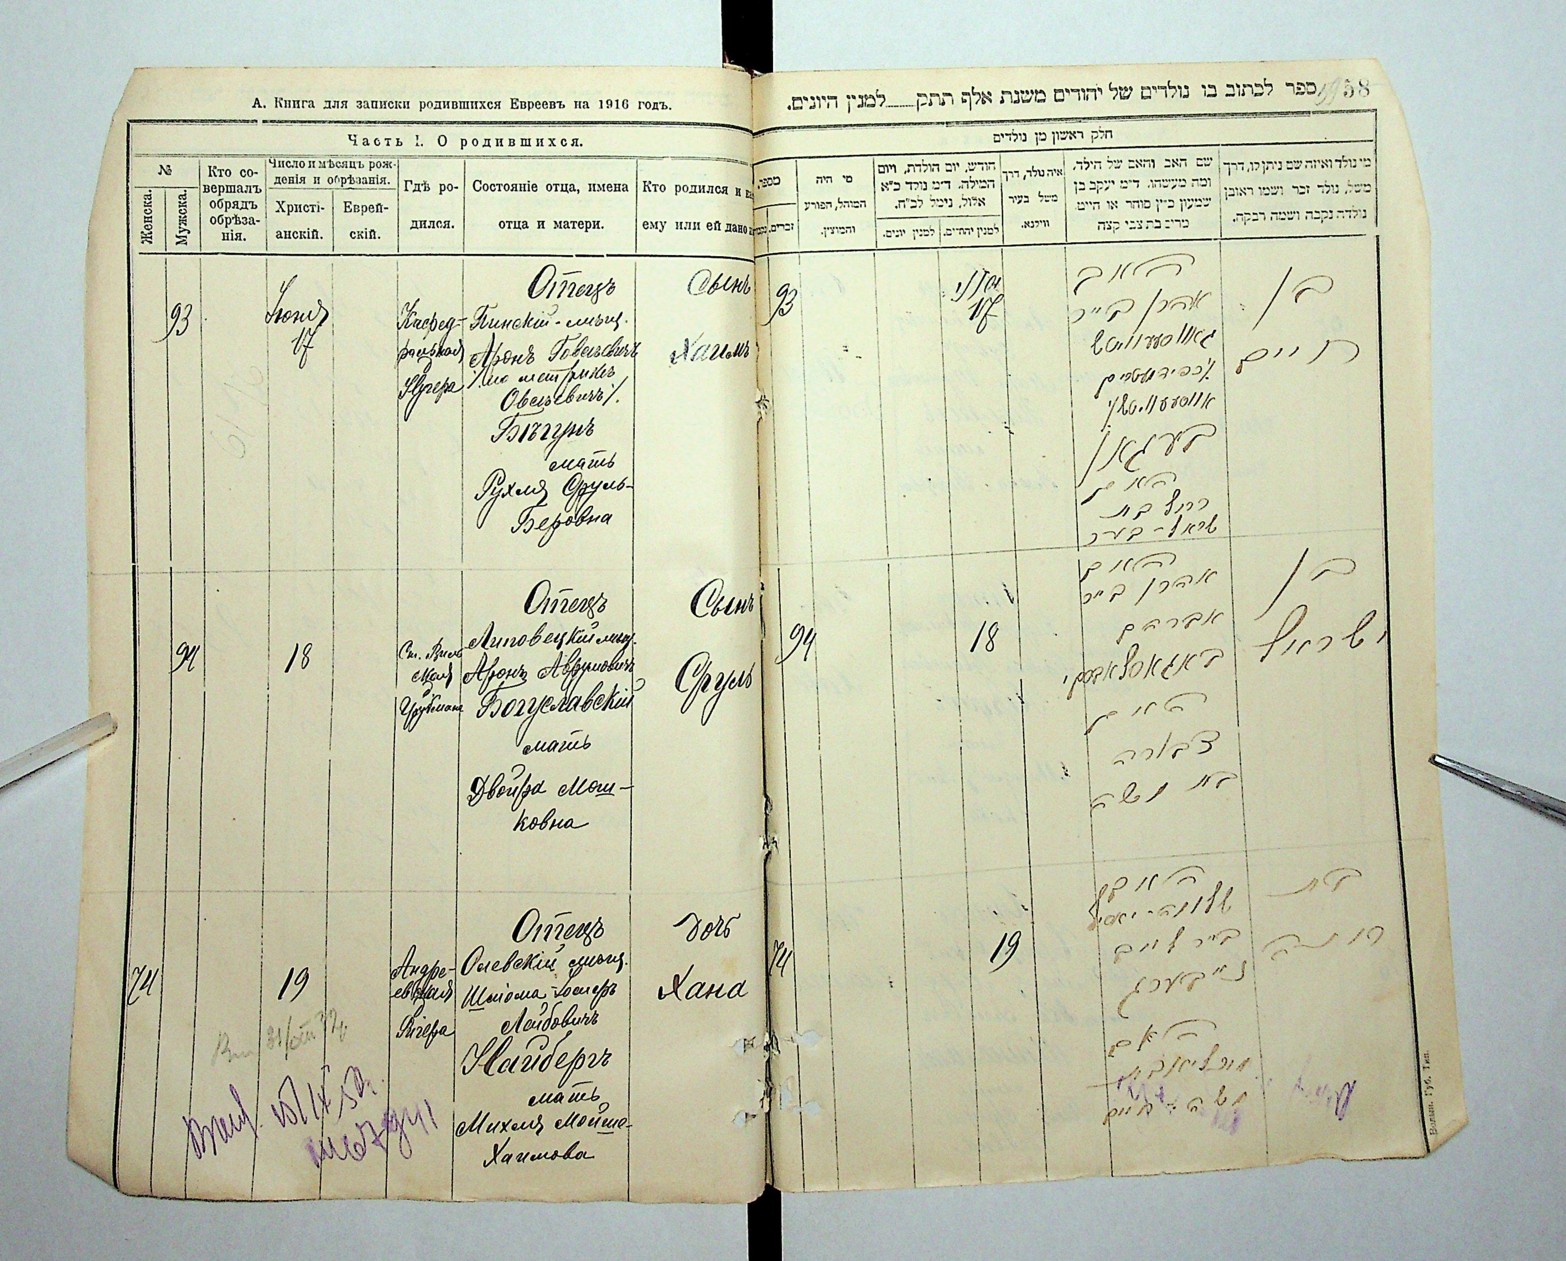 А. Книга для записки родившихся Евреевъ на 1916 годъ.
Часть I. О родившихся.
№
Женска.
Мужска.
Кто со-
вершалъ
обрядъ
обрѣза-
нія.
Число и мѣсяцъ рож-
денія и обрѣзанія.
Христі-
анскій.
Еврей-
скій.
Гдѣ ро-
дился.
Состояніе отца, имена
отца и матери.
Кто родился и
ему или ей дано
93
Іюня
17
Отецъ
Пинскій мѣщ.
Аронъ
/по метрикѣ
Овсѣевичъ/.
Бѣгунъ
мать
Рухля Сруль-
Беровна
Сынъ
Хаимъ
94
18
Отецъ
Липовецкій мѣщ.
Аронъ Аврумовичъ
Богуславскій
мать
Двойра Мош-
ковна
Сынъ
Сруль
74
19
Андре-
евская
Отецъ
Олевскій мѣщ.
Шлома
Лейбовичъ
Найбергъ
мать
Михля Мойше-
Хаимова
Дочь
Хана
ספר לכתוב בו נולדים של יהודים משנת אלף תתק למנין היונים.
58
חלק ראשון מן נולדים
מספר
זכרים
מי היה
המוהל, הפורע
והמוצץ.
חודש, יום הולדת, ויום
המילה. ד״מ נולד כ״א
אלול, נימל לכ״ח.
למנין יונים.
למנין יהודים.
איה נולד, דרך
משל בעיר
ווילנא.
שם האב והאם של הילד.
ומה מעשהו. ד״מ יעקב בן
שמעון כ״ץ סוחר או חייט
מרים בת צבי קצה
מי נולד ואיזה שם ניתן לו, דרך
משל, נולד זכר ושמו ראובן
נולדה נקבה ושמה רבקה.
93
יוני
17
האב
אהרן
האם
רחל בת
בן
חיים
94
18
אהרן
אברהם
האם
דבורה
בת משה
בן
ישראל
74
19
האב
נייבערג
האם
משה חיים
בת
חנה
Волын. Губ. Тип.